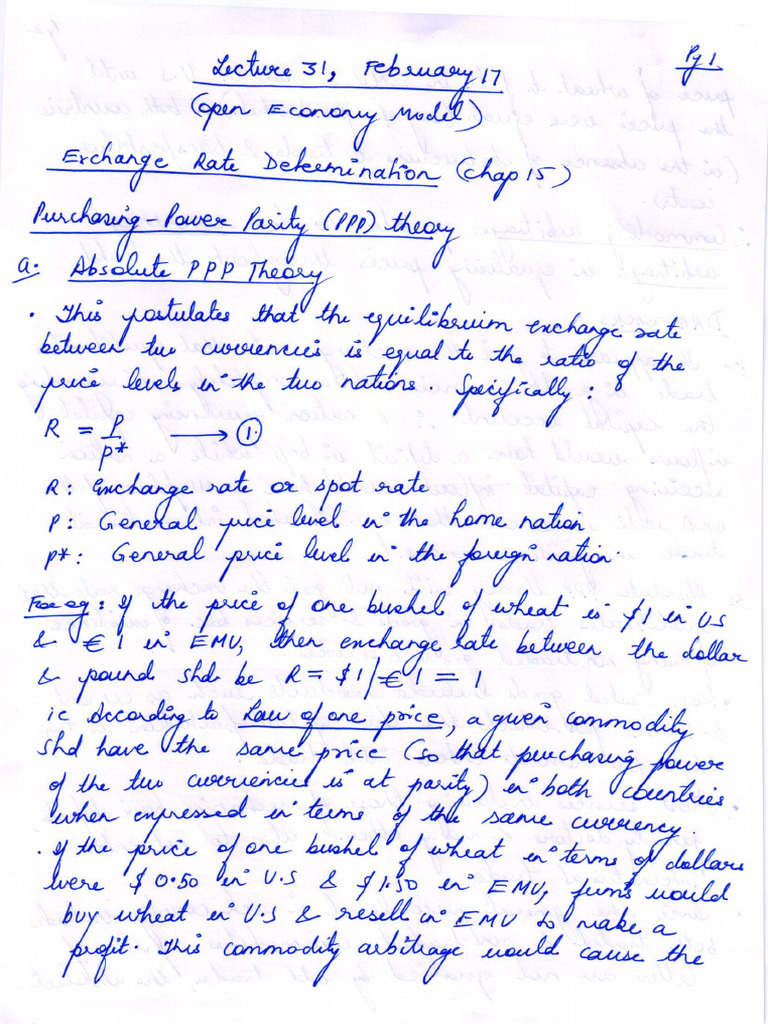 Pg 1
Lecture 31, February 17
(Open Economy Model)
Exchange Rate Determination (Chap 15)
Purchasing-Power Parity (PPP) theory
a. Absolute PPP Theory
. This postulates that the equilibrium exchange rate
between two currencies is equal to the ratio of the
price levels in the two nations. Specifically:
R = P/P* → ①
R: Exchange rate or spot rate
P: General price level in the home nation
P*: General price level in the foreign nation.
For eg: If the price of one bushel of wheat is $1 in US
& €1 in EMU, then exchange rate between the dollar
& pound shd be R = $1/€1 = 1
ie According to Law of one price, a given commodity
shd have the same price (so that purchasing power
of the two currencies is at parity) in both countries
when expressed in terms of the same currency.
. If the price of one bushel of wheat in terms of dollars
were $0.50 in U.S & $1.50 in EMU, firms would
buy wheat in U.S & resell in EMU to make a
profit. This commodity arbitrage would cause the